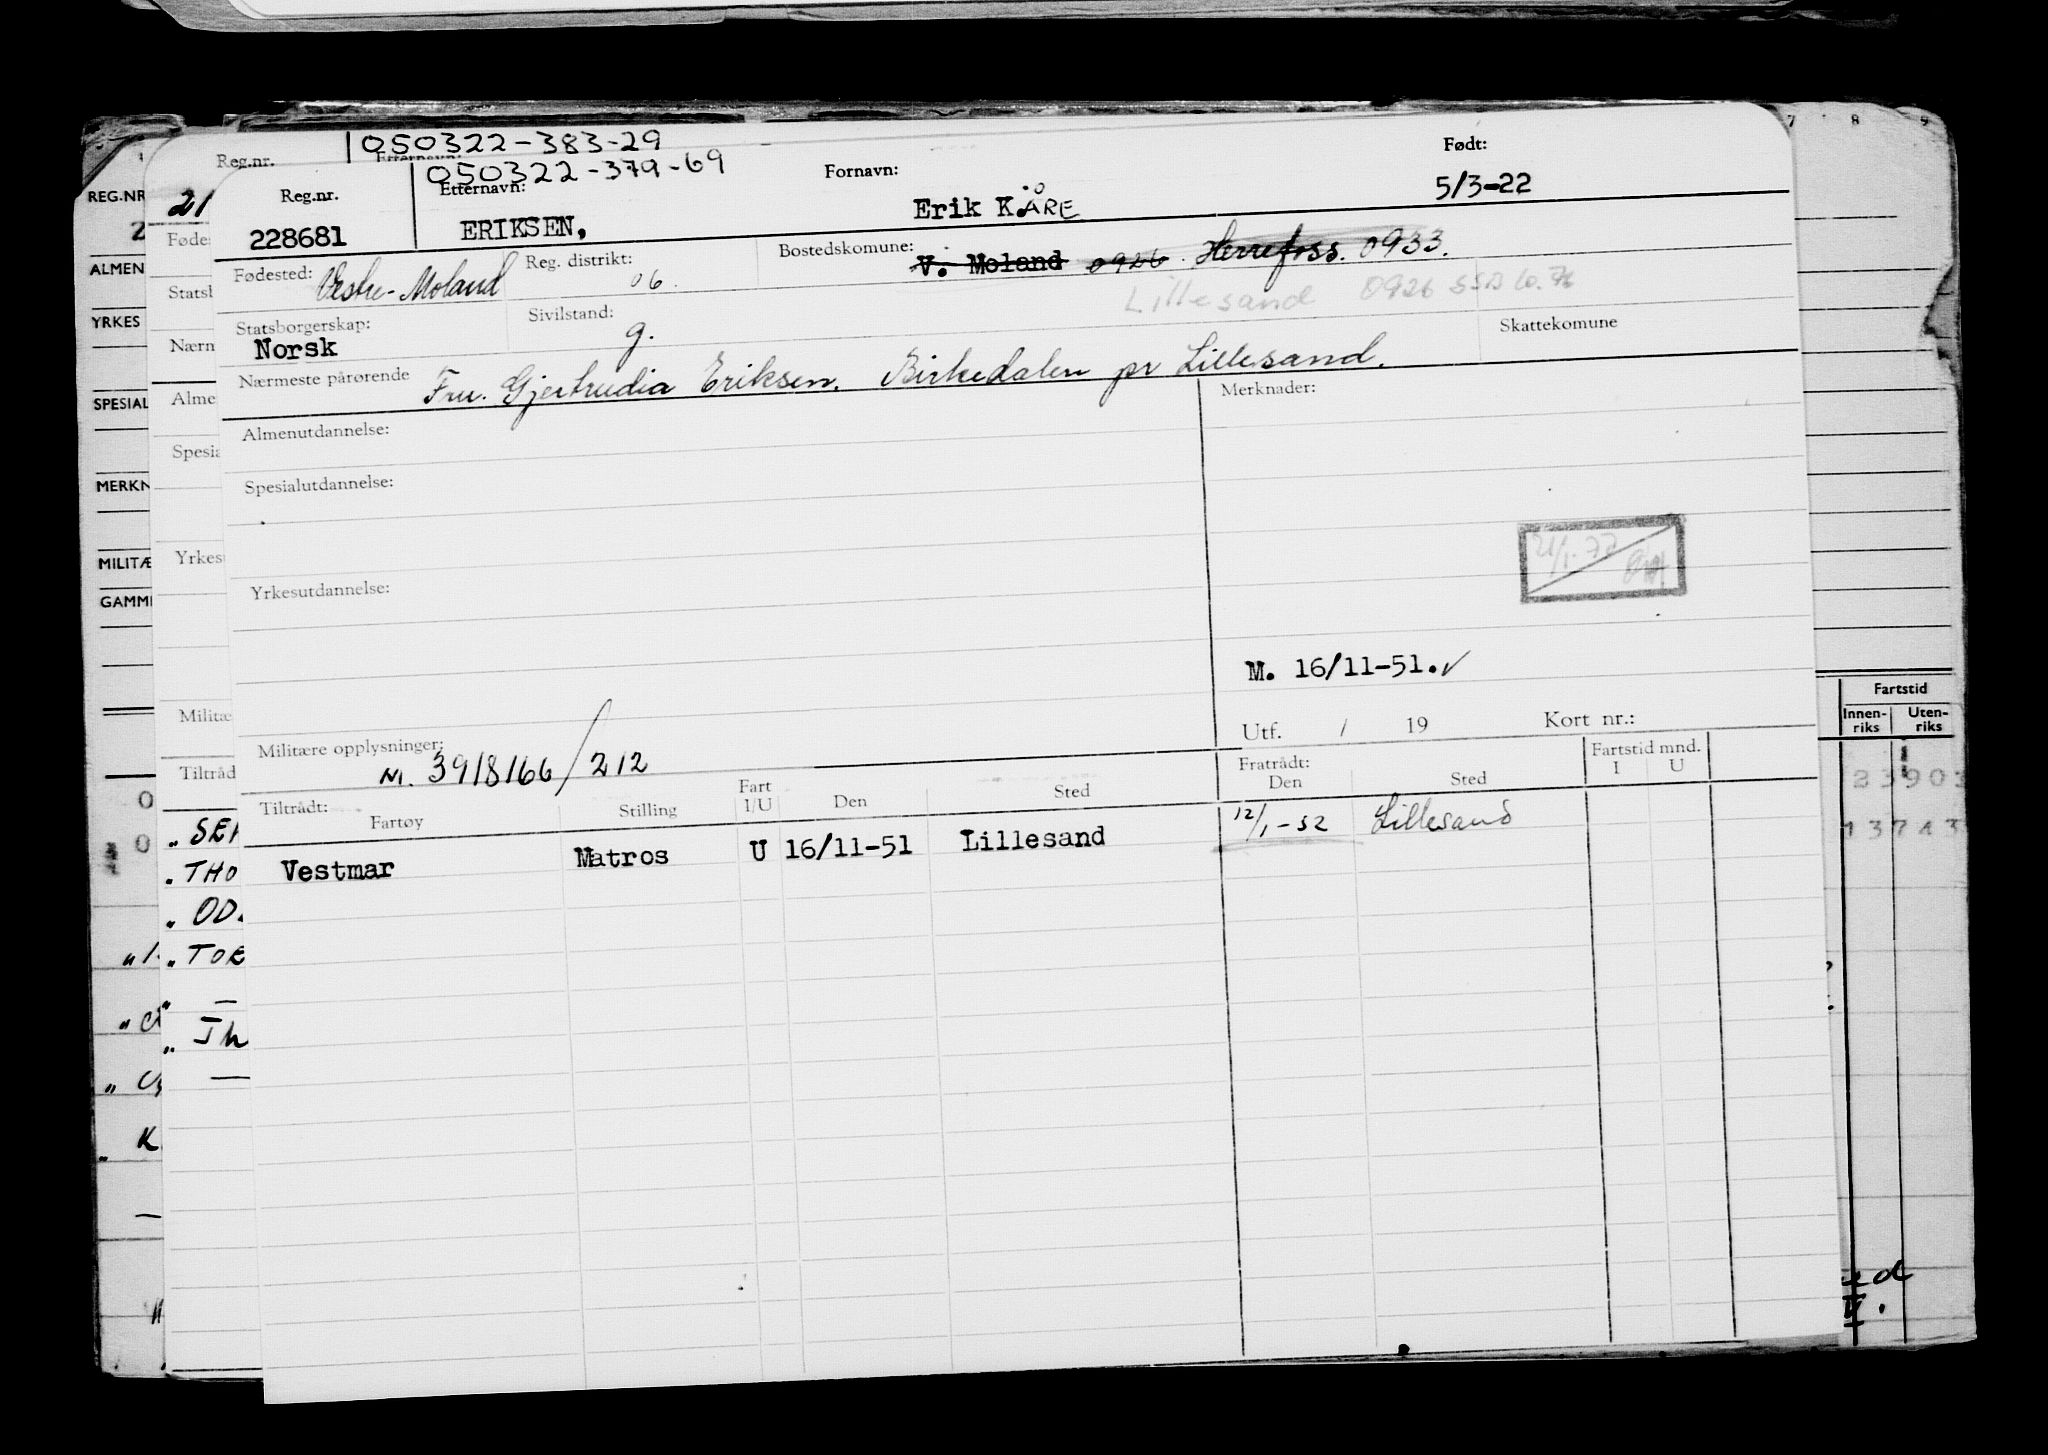 050322-383-29
Reg.nr. Etternavn:
050322-379-69
Reg.nr. Etternavn: Fornavn: Født:
228681 ERIKSEN, Erik KÅRE 5/3-22
Fødested: Vestre-Moland Reg. distrikt: 06. Bostedskomune: V. Moland 0926 Herrefoss. 0933.
Lillesand 0926 SSB 10.76
Statsborgerskap: Norsk Sivilstand: g. Skattekomune
Nærmeste pårørende Fru. Gjertrudia Eriksen. Birkedalen pr Lillesand.
Almenutdannelse: Merknader:
Spesialutdannelse:
21/1-77
Yrkesutdannelse:
M. 16/11-51.
Utf. / 19 Kort nr.:
Militære opplysninger: N. 3918166/212
Tiltrådt: Fratrådt: Fartstid mnd.
Fartøy Stilling Fart I/U Den Sted Den Sted I U
Vestmar Matros U 16/11-51 Lillesand 12/1-52 Lillesand
21
Føde
Statsb
Nærn
Alme
Spesia
Yrkesu
Militæ
Tiltråd
" SE
" THO
" OD
" TOR
" —
" Th
—
REG.NR
2
ALMEN
YRKES
SPESIAL
MERKN
MILITÆ
GAMM
0
0
K
7 8 9
Fartstid
Innen-riks Uten-riks
23903
13713